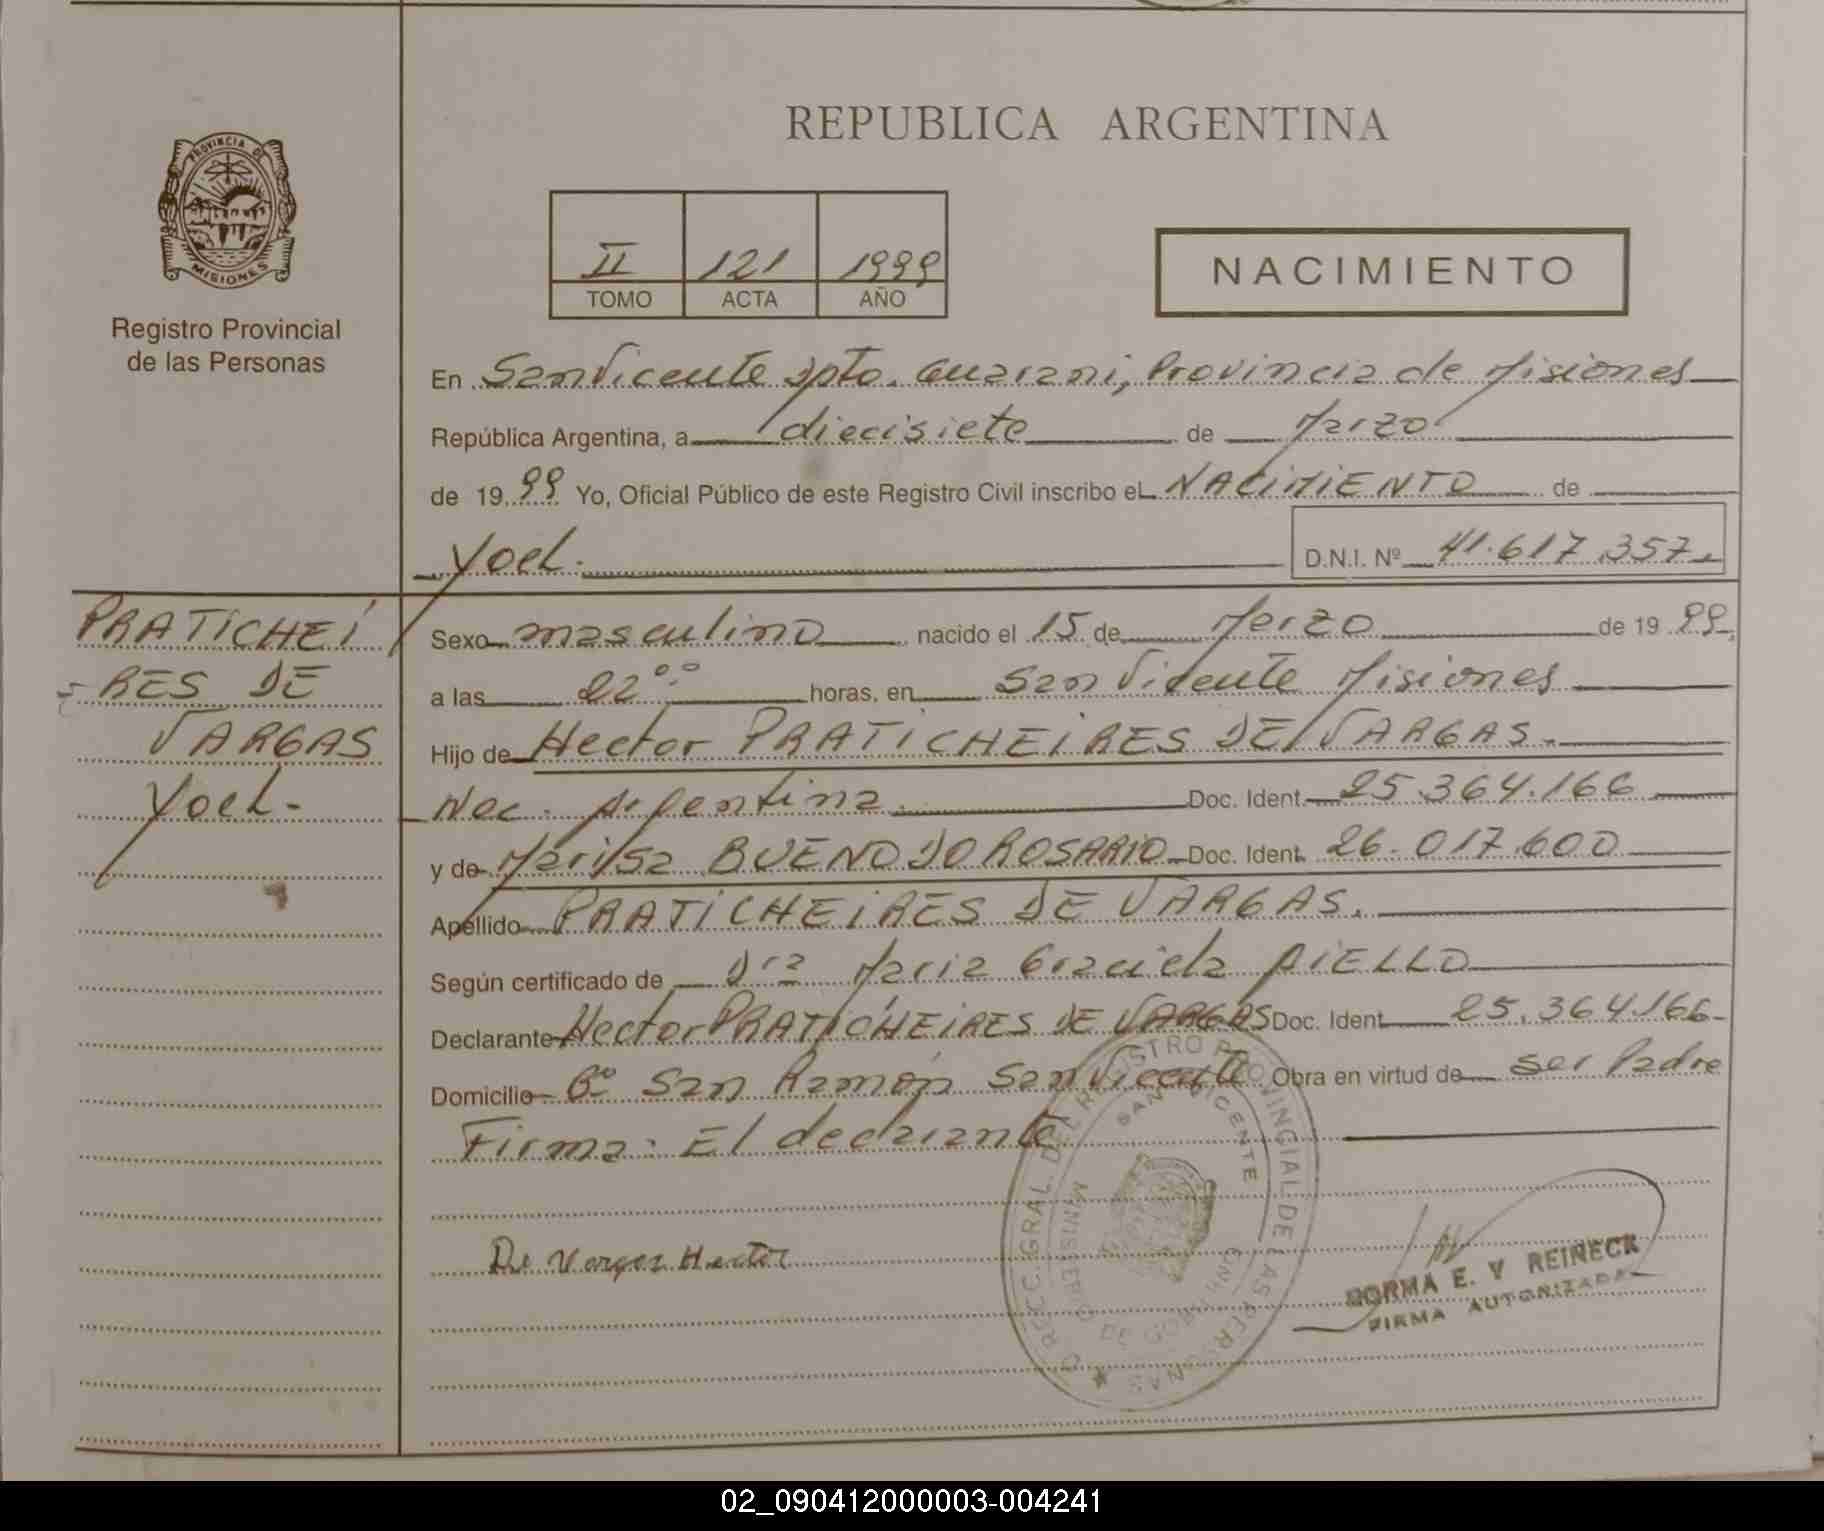 REPUBLICA ARGENTINA
PROVINCIA DE
MISIONES
Registro Provincial
de las Personas
II 121 1999
TOMO ACTA AÑO
NACIMIENTO
En San Vicente Dpto. Guarani, Provincia de Misiones
República Argentina, a diecisiete de Marzo
de 19 99 Yo, Oficial Público de este Registro Civil inscribo el NACIMIENTO de
Yoel. D.N.I. Nº 41.617.357.-
PRATICHEI
RES DE
VARGAS
Yoel.-
Sexo masculino nacido el 15 de Marzo de 19 99,
a las 22 00 horas, en San Vicente Misiones
Hijo de Hector PRATICHEIRES DE VARGAS.
Nac. Argentina. Doc. Ident. 25.364.166
y de Marisa BUENO DO ROSARIO Doc. Ident. 26.017.600
Apellido PRATICHEIRES DE VARGAS.
Según certificado de Dra Maria Graciela AIELLO
Declarante Hector PRATICHEIRES DE VARGAS Doc. Ident. 25.364.166-
Domicilio Bº San Ramón San Vicente Obra en virtud de ser Padre
Firma: El declarante
De Vargas Hector
DIRECC. GRAL. DEL REGISTRO PROVINCIAL DE LAS PERSONAS
SAN VICENTE
MINISTERIO DE GOBIERNO
NORMA E. V REINECK
FIRMA AUTORIZADA
02_090412000003-004241